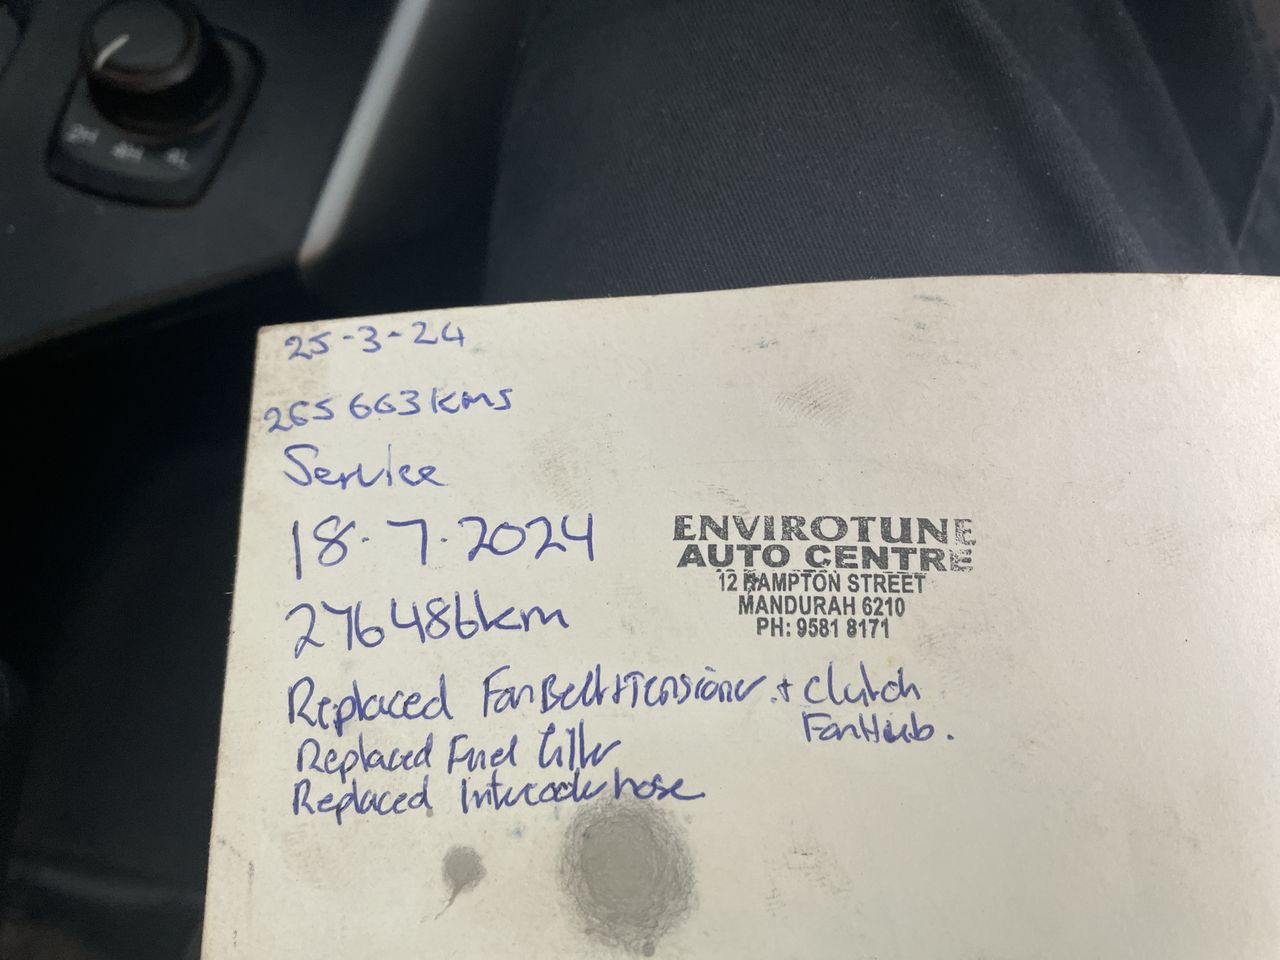 2H 4H 4L
25-3-24
265 663 kms
Service
18.7.2024
276486km
ENVIROTUNE
AUTO CENTRE
12 HAMPTON STREET
MANDURAH 6210
PH: 9581 8171
Replaced FanBelt+Tensioner + Clutch
FanHub.
Replaced Fuel filter
Replaced Intercooler hose